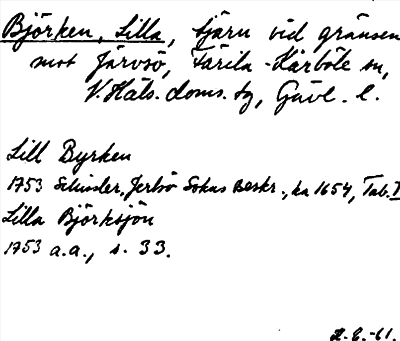 Björken, Lilla, tjärn vid gränsen
mot Järvsö, Färila-Kårböle sn,
V. Häls. doms. tg, Gävl. l.
Lill Byrken
1753 Schissler, Jerfsö Sokns Beskr., ka 1654, Tab. I
Lilla Björksjön
1753 a.a., s. 33.